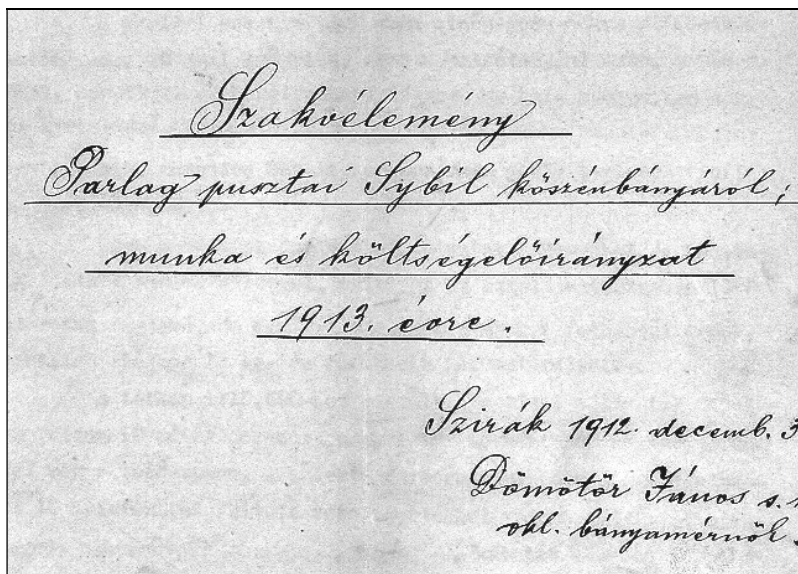 Szakvélemény
Parlag pusztai Sybil kőszénbányáról;
munka és költségelőirányzat
1913. évre.
Szirák 1912. decemb. 3
Dömötör János s.
okl. bányamérnök